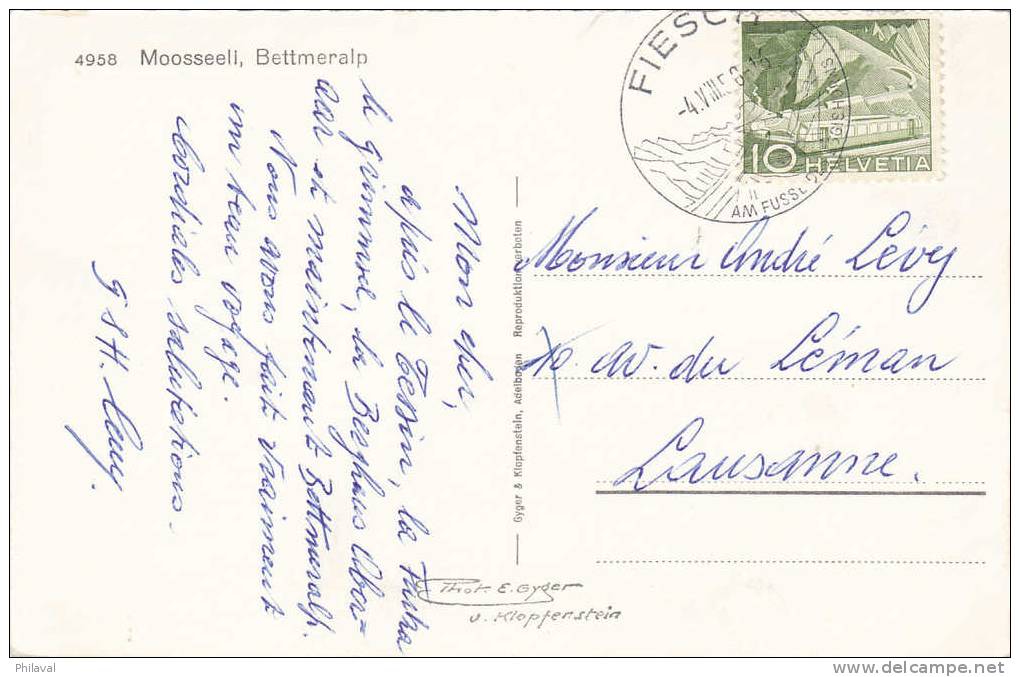 4958 Moosseeli, Bettmeralp
FIESCH
-4.VIII.5
AM FUSSE
10 HELVETIA
Mon cher,
depuis le Tessin, la Furka
le Grimsel, le Berghaus Ober=
aar et maintenant Bettmeralp.
Nous avons fait vraiment
un beau voyage.
Cordiales salutations.
Gyger & Klopfenstein, Adelboden Reproduktion verboten
Monsieur André Lévy
10. av. du Léman
Lausanne.
Phot. E. Gyger
u. Klopfenstein
Philaval
delcampe.net